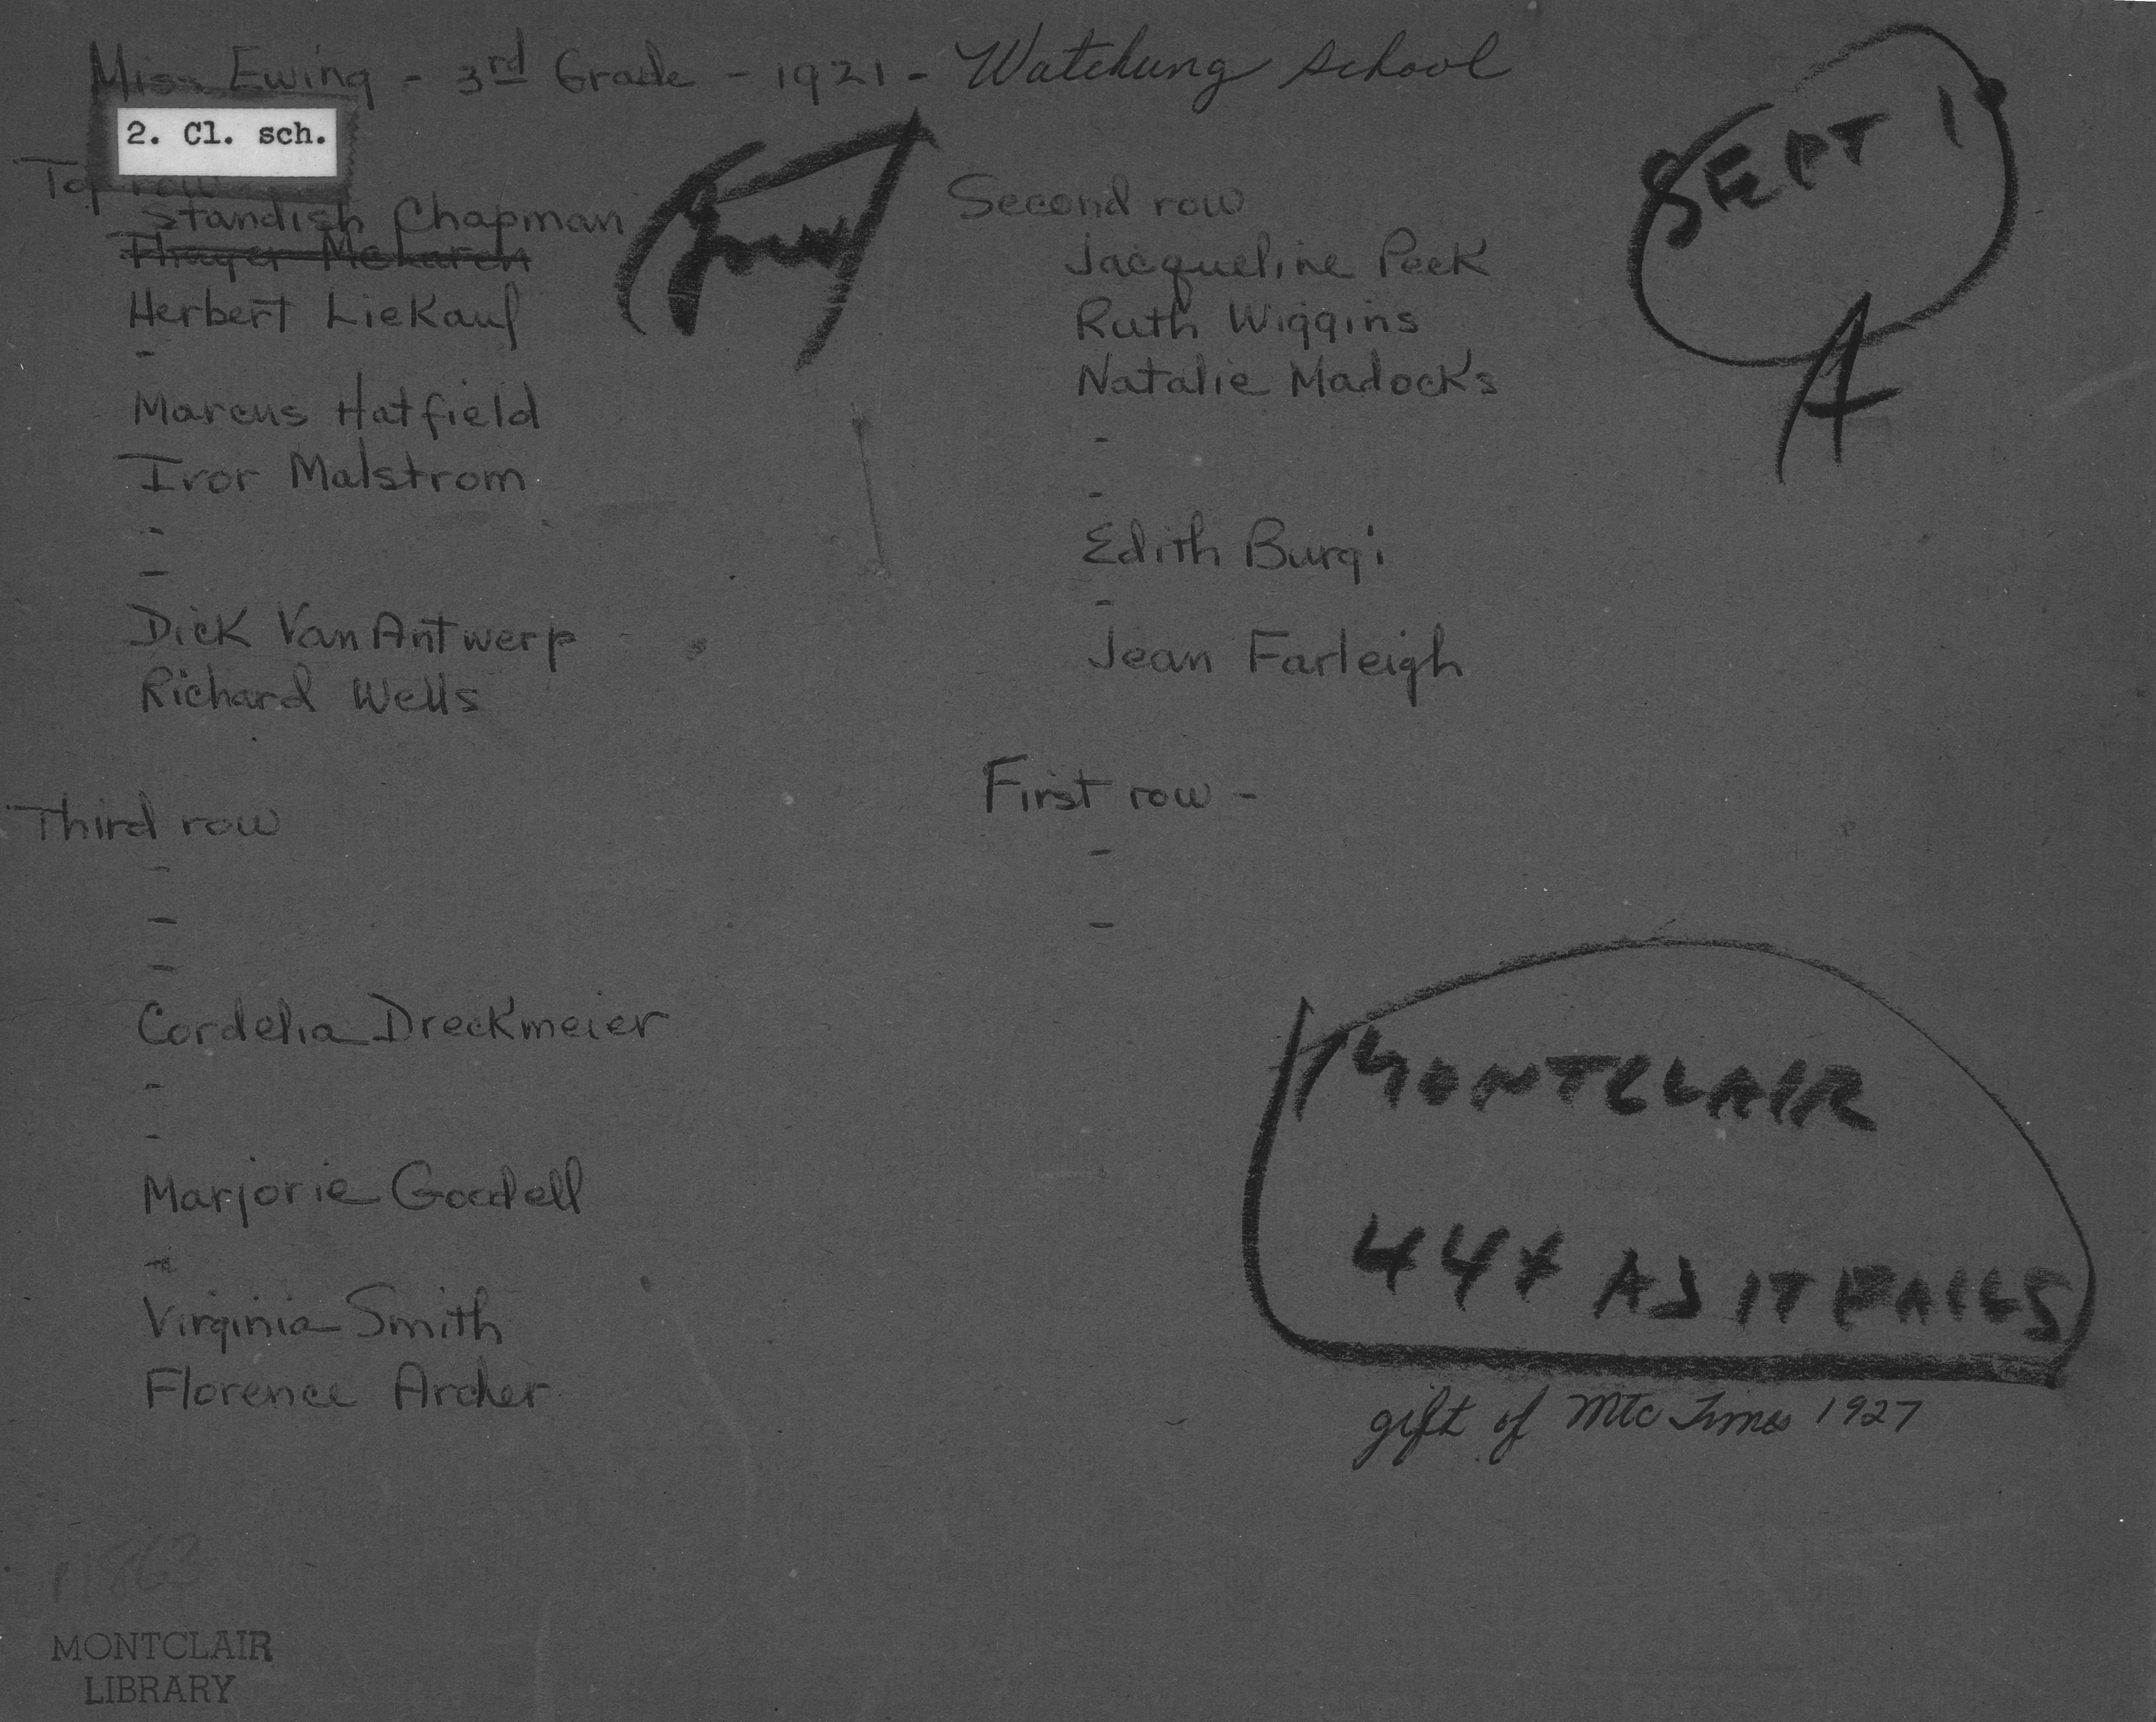 Miss Ewing - 3rd Grade - 1921 - Watchung school
2. Cl. sch.
Top row
Standish Chapman
Thayer McLaren
Herbert Liekauf
-
Marcus Hatfield
Ivor Malstrom
-
-
Dick Van Antwerp
Richard Wells
Third row
-
-
-
Cordelia Dreckmeier
-
-
Marjorie Goodell
-
Virginia Smith
Florence Archer
Second row
Jacqueline Peek
Ruth Wiggins
Natalie Madocks
-
-
Edith Burgi
-
Jean Farleigh
First row -
-
-
SEPT 1
A
MONTCLAIR
44x AS IT FALLS
gift of Mtc Times 1927
11863
MONTCLAIR
LIBRARY